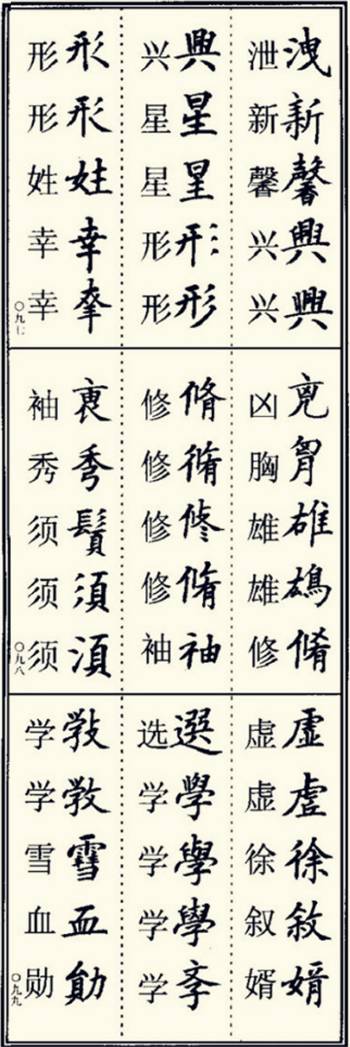 洩新馨興興
泄新馨兴兴
興星星形形
兴星星形形
形形姓幸幸
形形姓幸幸
〇九七
兇胷雄䧺脩
凶胸雄雄修
脩脩修脩袖
修修修修袖
秀鬚須湏
袖秀须须须
〇九八
虛虗徐敘婿
虚虚徐叙婿
選學學學斈
选学学学学
雪血勛
学学雪血勋
〇九九